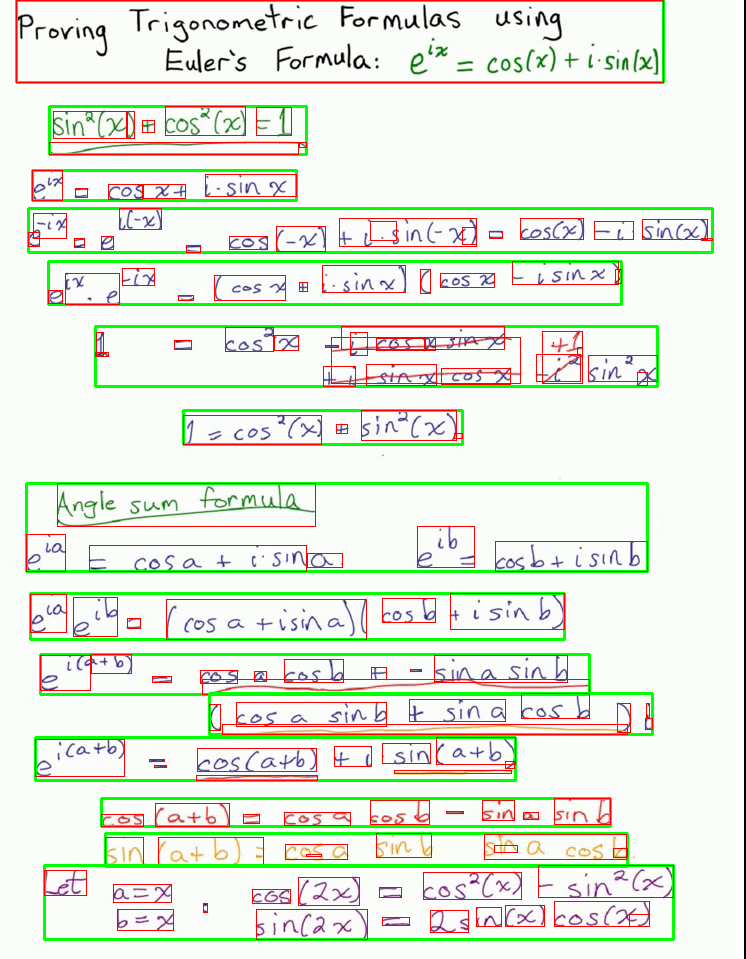 Proving Trigonometric Formulas using
Euler's Formula: e^{ix} = cos(x) + i·sin(x)
sin²(x) + cos²(x) = 1
e^{ix} = cos x + i·sin x
e^{-ix} = e^{i(-x)} = cos(-x) + i·sin(-x) = cos(x) - i sin(x)
e^{ix} · e^{-ix} = (cos x + i·sin x)(cos x - i sin x)
1 = cos²x - i cos x sin x +1
+ i sin x cos x - i² sin²x
1 = cos²(x) + sin²(x)
Angle sum formula
e^{ia} = cos a + i·sin a e^{ib} = cos b + i sin b
e^{ia} e^{ib} = (cos a + i sin a)(cos b + i sin b)
e^{i(a+b)} = cos a cos b + - sin a sin b
(cos a sin b + sin a cos b) i
e^{i(a+b)} = cos(a+b) + i sin(a+b)
cos(a+b) = cos a cos b - sin a sin b
sin(a+b) = cos a sin b sin a cos b.
Let a=x : cos(2x) = cos²(x) - sin²(x)
b=x sin(2x) = 2sin(x) cos(x)